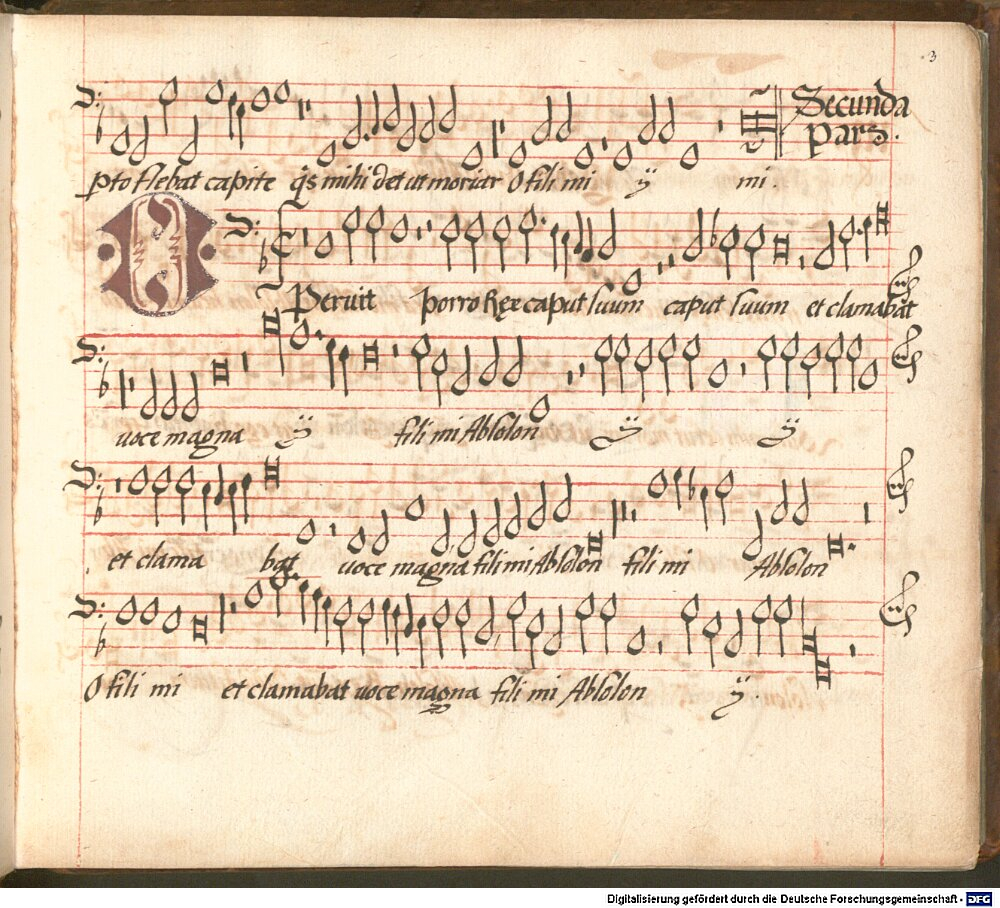 3
Secunda
Pars.
pto flebat capite q̃s mihi det ut moriar O fili mi ÿ mi.
OPeruit porro Rex caput suum caput suum et clamabat
uoce magna ÿ fili mi Absolon ÿ ÿ
et clama bat uoce magna fili mi Absolon fili mi Absolon
O fili mi et clamabat uoce magna fili mi Absolon ÿ.
Digitalisierung gefördert durch die Deutsche Forschungsgemeinschaft - DFG